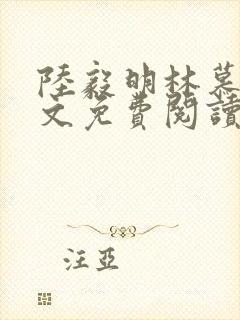 陸毅明林慕
文免費閱讀
汪亞